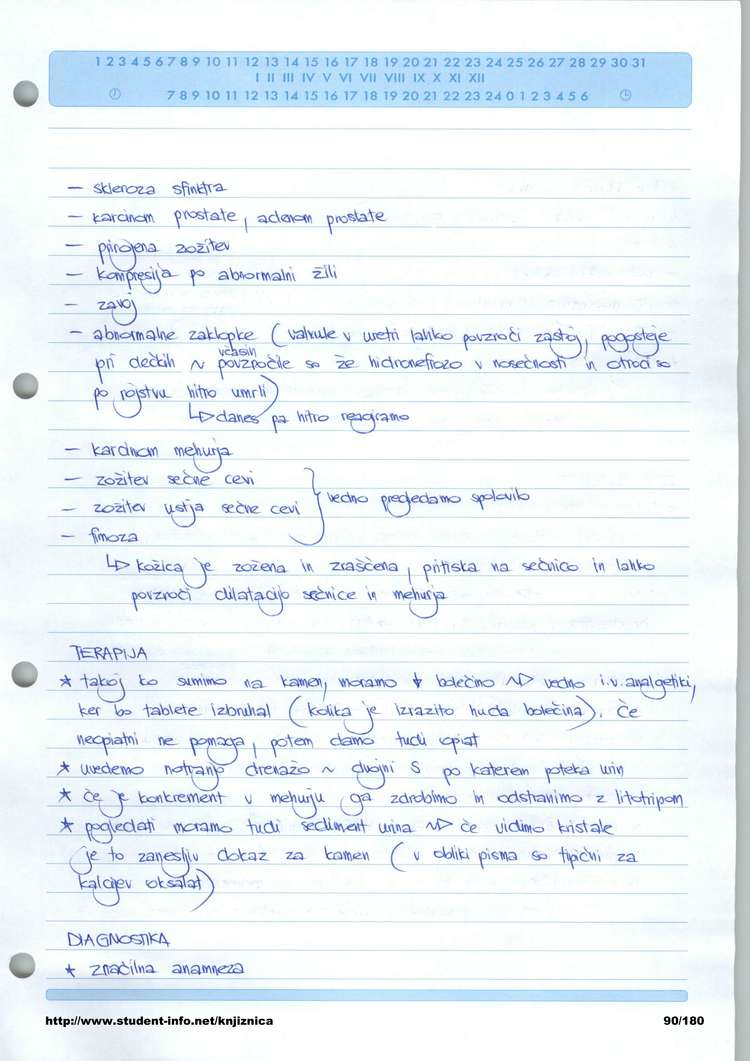 1 2 3 4 5 6 7 8 9 10 11 12 13 14 15 16 17 18 19 20 21 22 23 24 25 26 27 28 29 30 31
I II III IV V VI VII VIII IX X XI XII
7 8 9 10 11 12 13 14 15 16 17 18 19 20 21 22 23 24 0 1 2 3 4 5 6
– skleroza sfinktra
– karcinom prostate, adenom prostate
– prirojena zožitev
– kompresija po abnormalni žili
– zavoj
– abnormalne zaklopke (valvule v uretri lahko povzroči zastoj, pogosteje
včasih
pri dečkih ~ povzpočile so že hidronefrozo v nosečnosti in otroci so
po rojstvu hitro umrli)
↳ danes pa hitro reagiramo
– karcinom mehurja
– zožitev sečne cevi
– zožitev ustja sečne cevi } vedno pregledamo spolovilo
– fimoza
↳ kožica je zožena in zraščena, pritiska na sečnico in lahko
povzroči dilatacijo sečnice in mehurja
TERAPIJA
* takoj ko sumimo na kamen, moramo ↓ bolečino ~> vedno i.v. analgetiki,
ker bo tablete izbruhal (kolika je izrazito huda bolečina). Če
neopiatni ne pomaga, potem damo tudi opiat
* uvedemo notranjo drenažo ~ dvojni S po katerem poteka urin
* če je konkrement v mehurju ga zdrobimo in odstranimo z litotripom
* pogledati moramo tudi sediment urina ~> če vidimo kristale
je to zanesljiv dokaz za kamen (v obliki pisma so tipični za
kalcijev oksalat)
DIAGNOSTIKA
* značilna anamneza
http://www.student-info.net/knjiznica
90/180